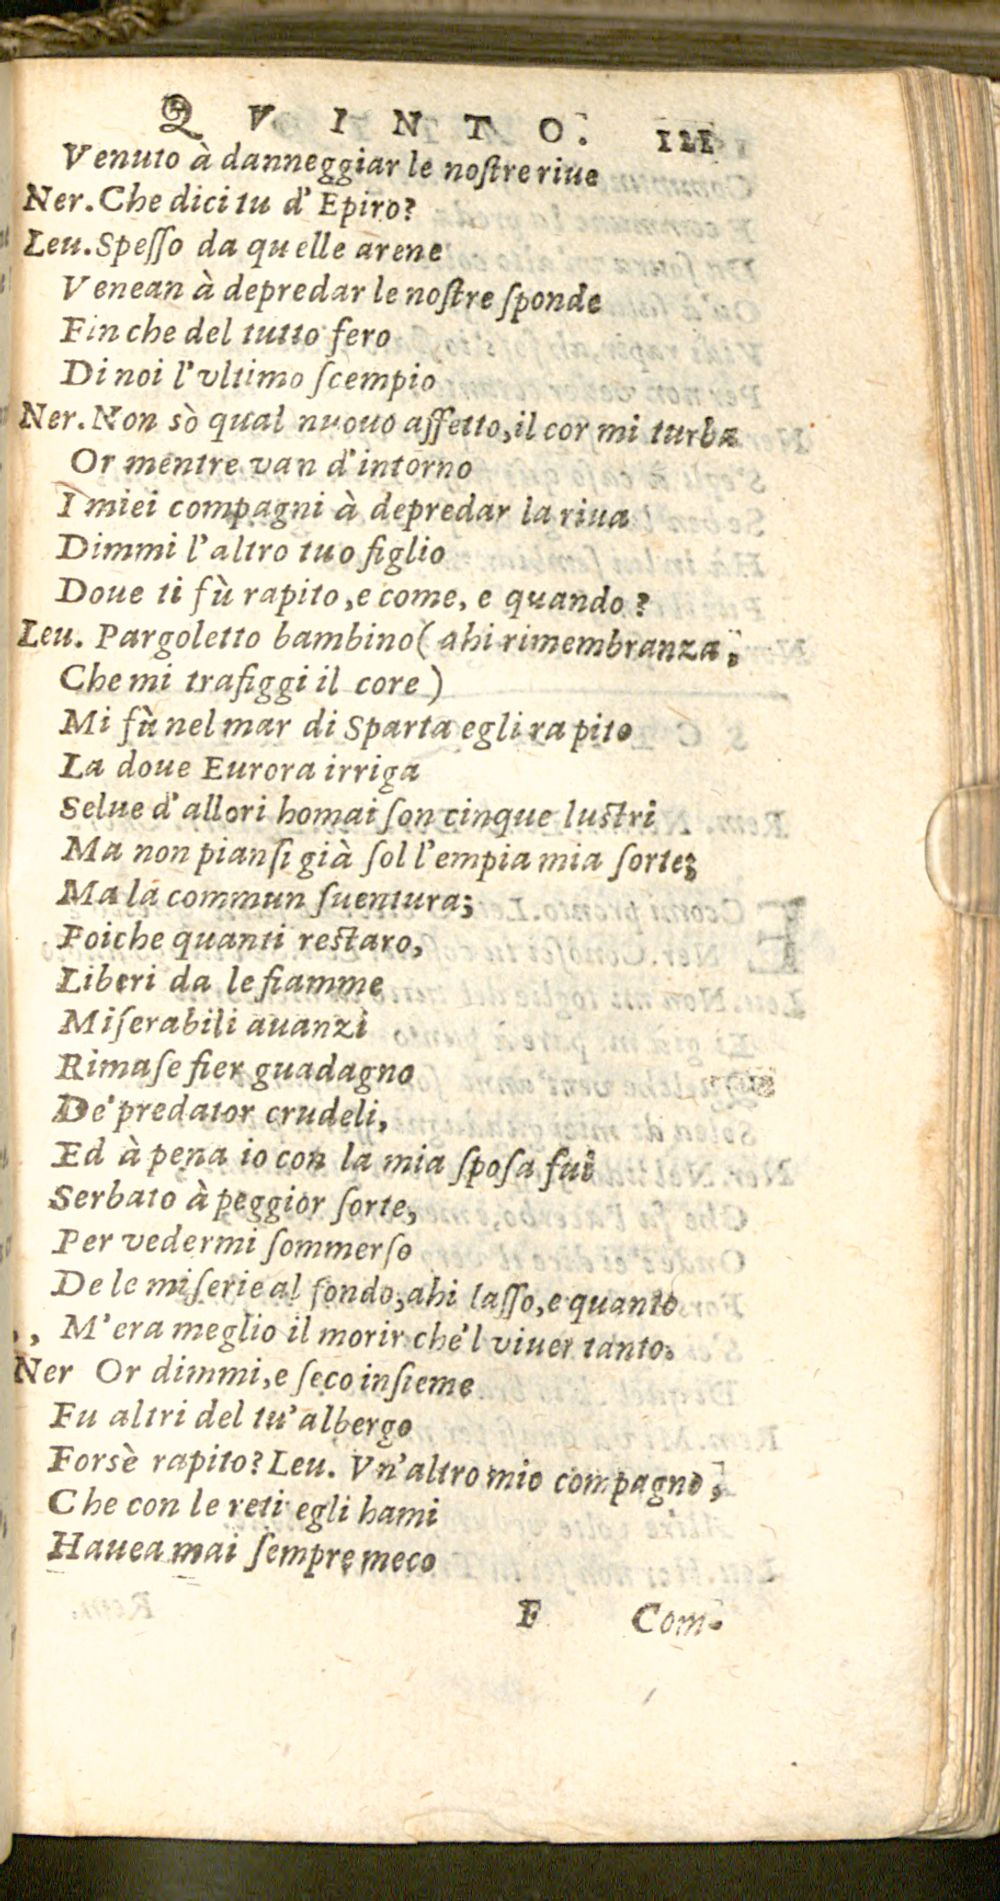 QVINTO. 121
Venuto à danneggiar le noſtre riue
Ner. Che dici tu d'Epiro?
Leu. Speſſo da quelle arene
Venean à depredar le noſtre ſponde
Fin che del tutto fero
Di noi l'vltimo ſcempio
Ner. Non sò qual nuouo affetto, il cor mi turba
Or mentre van d'intorno
I miei compagni à depredar la riua
Dimmi l'altro tuo figlio
Doue ti fù rapito, e come, e quando?
Leu. Pargoletto bambino (ahi rimembranza,
Che mi trafiggi il core)
Mi fù nel mar di Sparta egli rapito
La doue Eurora irriga
Selue d'allori homai ſon cinque luſtri
Ma non pianſi già ſol l'empia mia ſorte;
Ma la commun ſuentura;
Poiche quanti reſtaro,
Liberi da le fiamme
Miſerabili auanzi
Rimaſe fier guadagno
De' predator crudeli,
Ed à pena io con la mia ſpoſa fui
Serbato à peggior ſorte,
Per vedermi ſommerſo
De le miſerie al fondo, ahi laſſo, e quanto
,, M'era meglio il morir che'l viuer tanto.
Ner Or dimmi, e ſeco inſieme
Fu altri del tu' albergo
Forsè rapito? Leu. Vn'altro mio compagno,
Che con le reti egli hami
Hauea mai ſempre meco
F Com-